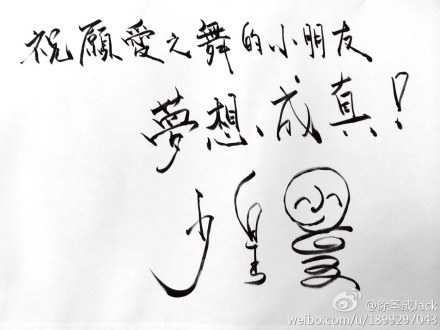 祝願愛之舞的小朋友
夢想、成真！
@徐圣成Jack
weibo.com/u/1899297043